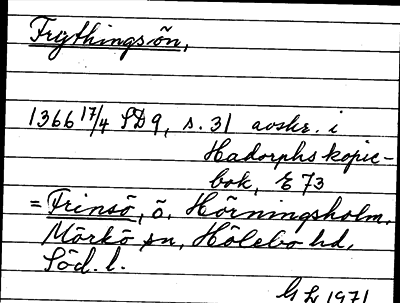 Frythingsön,
1366 17/4 SD9, s. 31 avskr. i
Hadorphs kopie-
bok, E 73
= Frinsö, ö. Hörningsholm.
Mörkö sn, Hölebo hd,
Söd. l.
G L 1971